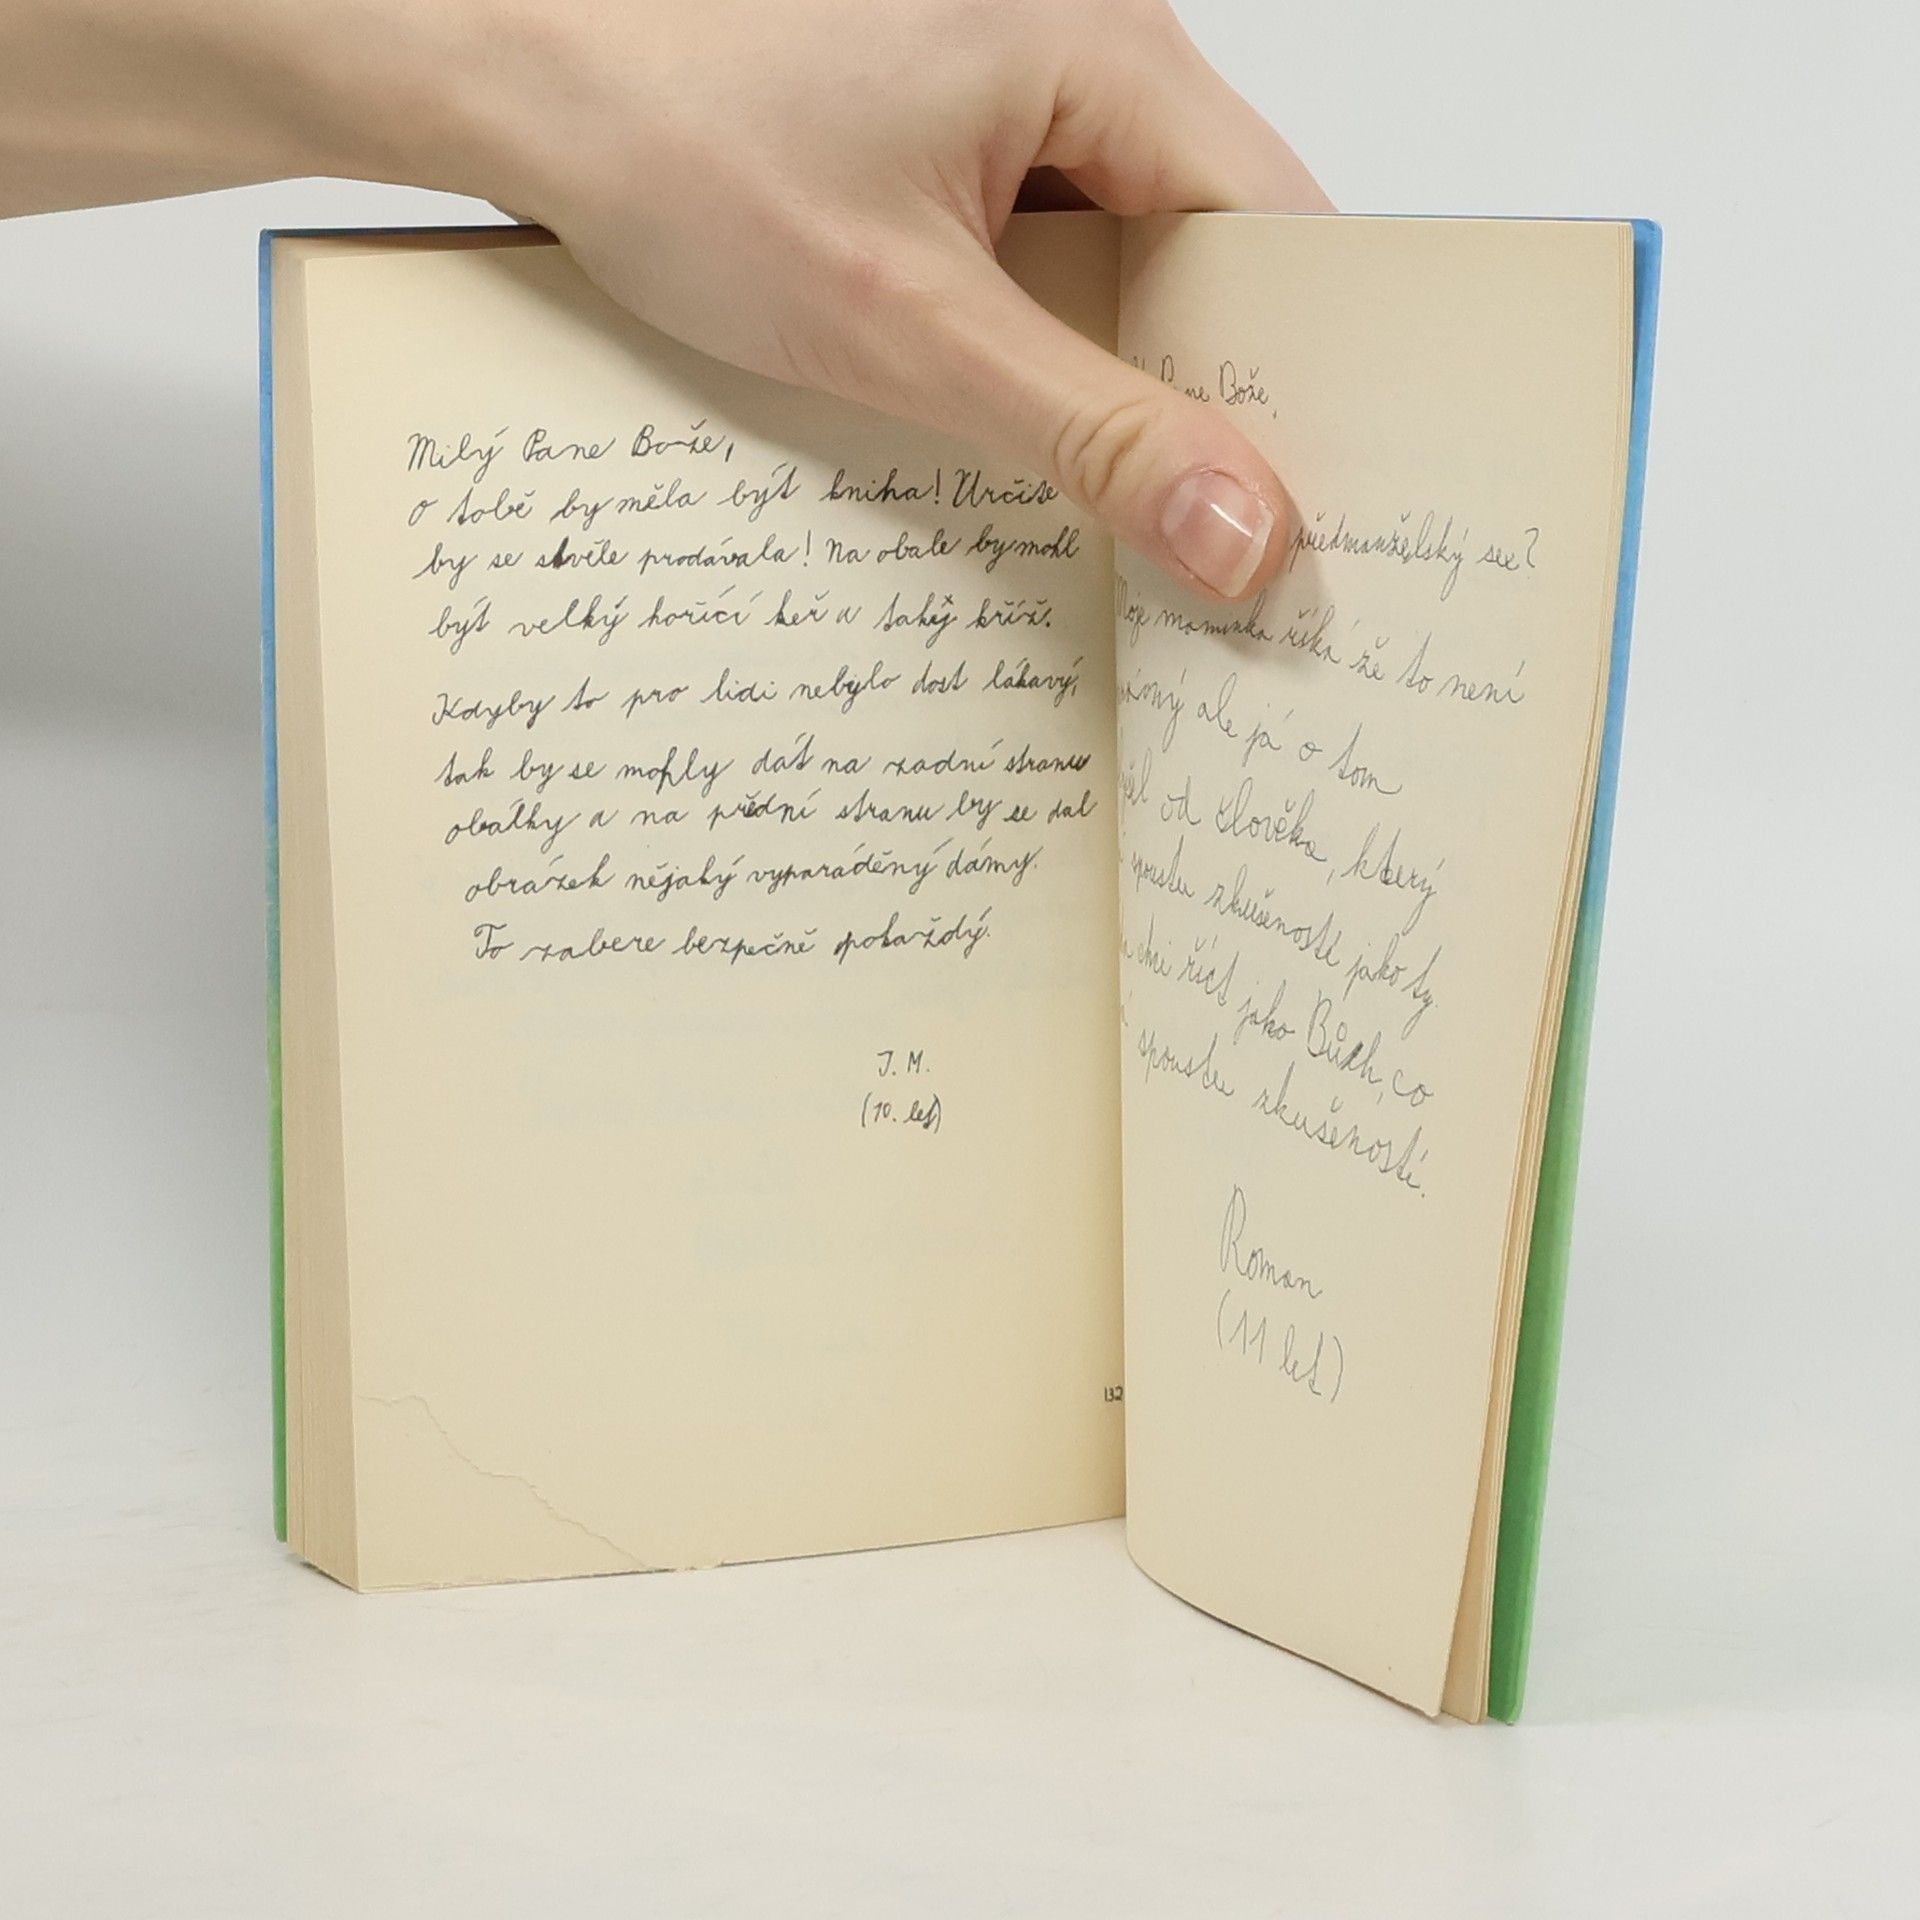 Milý Pane Bože,
o tobě by měla být kniha! Určite
by se skvěle prodávala! Na obale by mohl
být velký hořící keř a taky kříž.
Kdyby to pro lidi nebylo dost lákavý,
tak by se mohly dát na zadní stranu
obálky a na přední stranu by se dal
obrázek nějaký vyparáděný dámy.
To zabere bezpečně pokaždý.
J. M.
(10. let)
132
Bože,
předmanželský sex?
Moje maminka říká že to není
ale já o tom
od člověka, který
spoustu zkušeností jako ty.
chci říct jako Bůch, co
spoustu zkušeností.
Roman
(11 let)